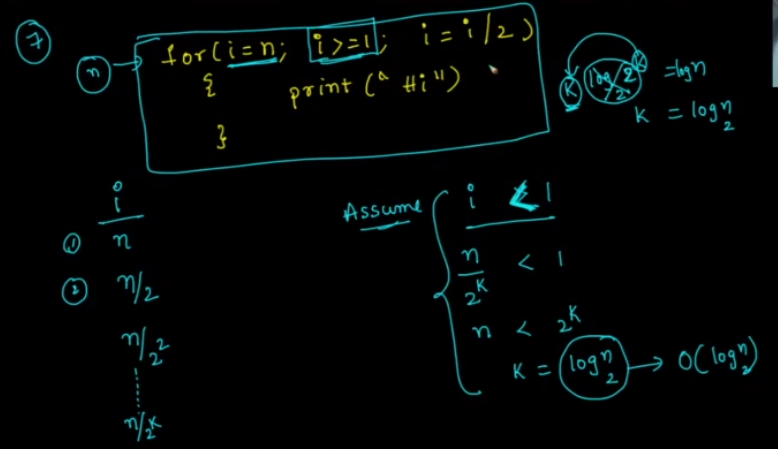 7
n → for(i=n; i>=1; i=i/2)
{
print("Hi")
}
K log₂2^K = log n
K = log₂n
i
① n
② n/2
n/2²
⋮
n/2^K
Assume
i < 1
n/2^K < 1
n < 2^K
K = log₂n → O(log₂n)